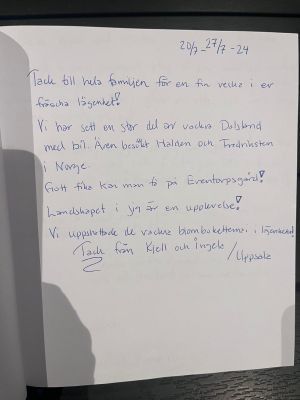 20/7 - 27/7 - 24
Tack till hela familjen för en fin vecka i er
fräscha lägenhet!
Vi har sett en stor del av vackra Dalsland
med bil. Även besökt Halden och Fredriksten
i Norge.
Gott fika kan man få på Eventorpsgård!
Landskapet i sig är en upplevelse!
Vi uppskattade de vackra blombuketterna i lägenheten!
Tack från Kjell och Ingela
/Uppsala